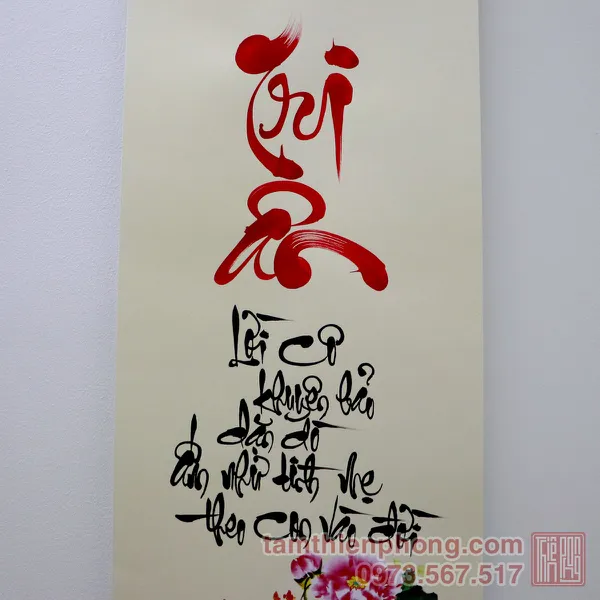 Tri
ân
Lời cô
khuyên bảo
dặn dò
ân như tình mẹ
theo con vào đời
tamthienphong.com
0973.567.517